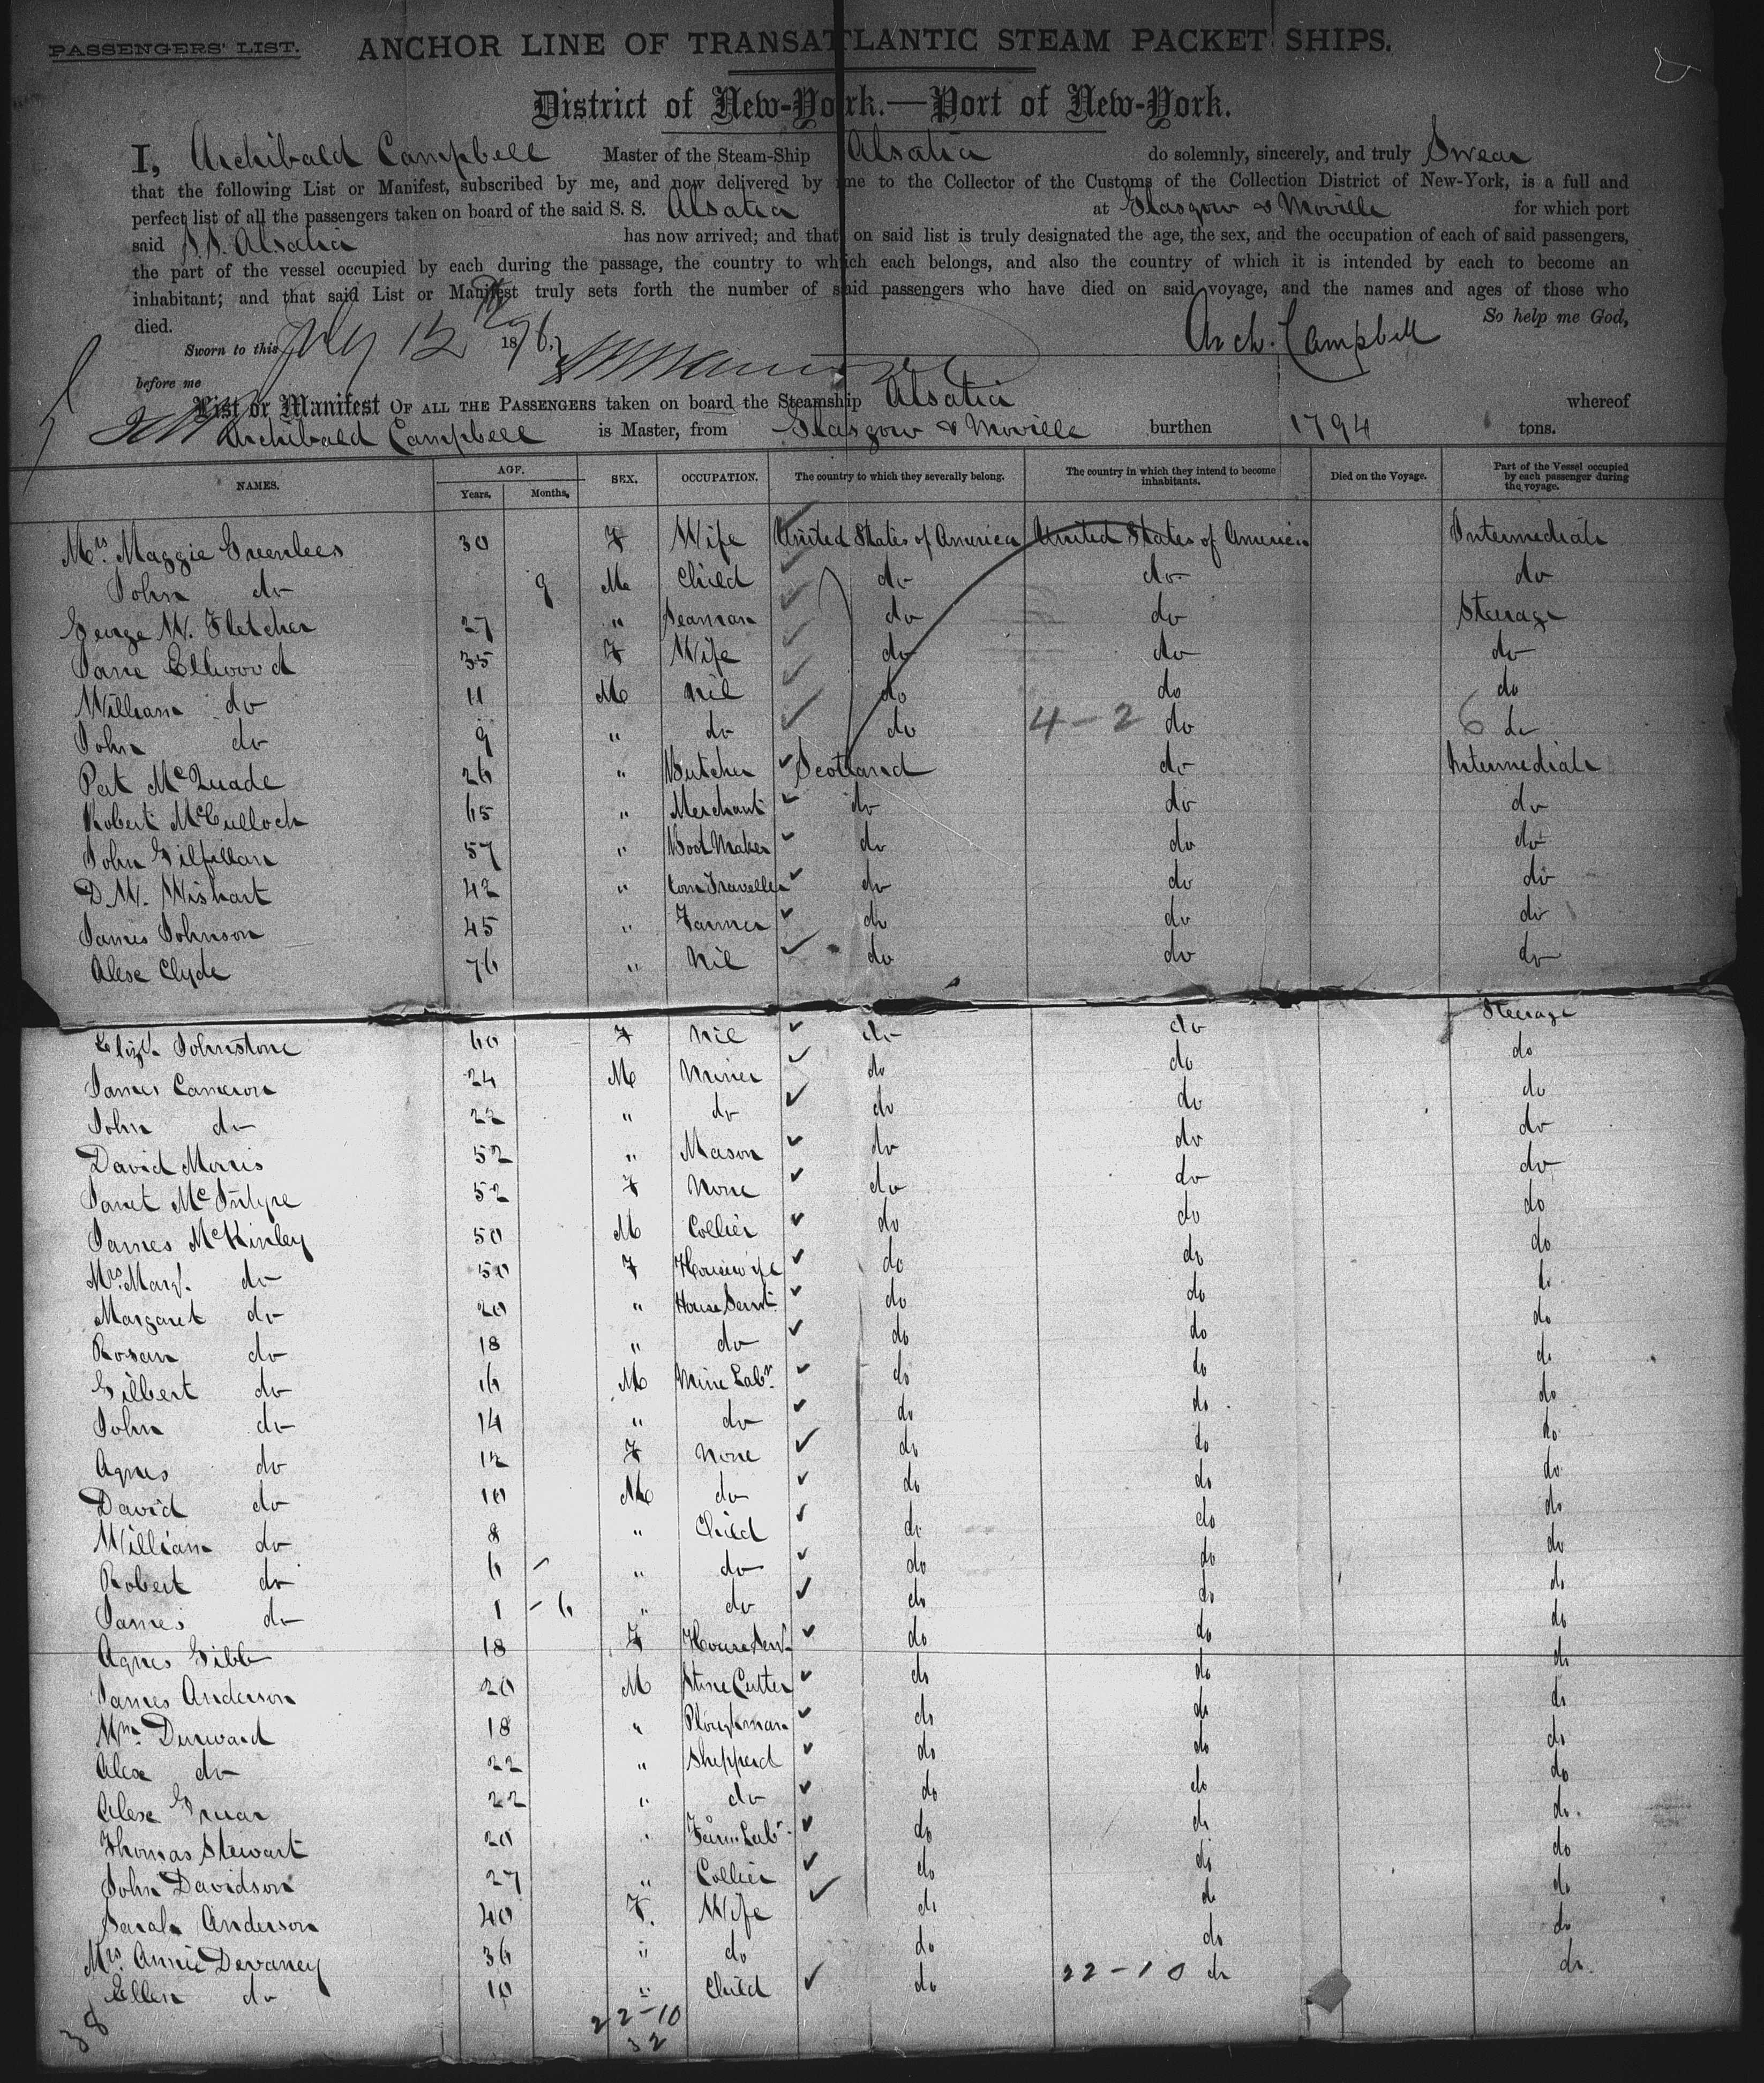 PASSENGERS' LIST. ANCHOR LINE OF TRANSATLANTIC STEAM PACKET SHIPS.
District of New-York.—Port of New-York.
I, Archibald Campbell Master of the Steam-Ship Alsatia do solemnly, sincerely, and truly Swear
that the following List or Manifest, subscribed by me, and now delivered by me to the Collector of the Customs of the Collection District of New-York, is a full and
perfect list of all the passengers taken on board of the said S. S. Alsatia at Glasgow & Moville for which port
said S.S. Alsatia has now arrived; and that on said list is truly designated the age, the sex, and the occupation of each of said passengers,
the part of the vessel occupied by each during the passage, the country to which each belongs, and also the country of which it is intended by each to become an
inhabitant; and that said List or Manifest truly sets forth the number of said passengers who have died on said voyage, and the names and ages of those who
died. So help me God,
Sworn to this July 12 18 Arch. Campbell
before me
List or Manifest OF ALL THE PASSENGERS taken on board the Steamship Alsatia whereof
Archibald Campbell is Master, from Glasgow & Moville burthen 1794 tons.
NAMES. AGE. Years. Months. SEX. OCCUPATION. The country to which they severally belong. The country in which they intend to become inhabitants. Died on the Voyage. Part of the Vessel occupied by each passenger during the voyage.
Mrs Maggie Greenlees 30 F Wife United States of America United States of America Intermediate
John do 9 M Child do do do
George W. Fletcher 27 " Seaman do do Steerage
Jane Ellwood 35 F Wife do do do
William do 11 M Nil do do do
John do 9 " do do 4-2 do 6 do
Pat McQuade 26 " Butcher Scotland do Intermediate
Robert McCulloch 65 " Merchant do do do
John Gilfillan 57 " Boot Maker do do do
D.W. Wishart 42 " Com Traveller do do do
James Johnson 45 " Farmer do do do
Alex Clyde 76 " Nil do do do
Elizth Johnstone 60 F Nil do do Steerage
James Cameron 24 M Miner do do do
John do 22 " do do do do
David Morris 52 " Mason do do do
Janet McIntyre 52 F None do do do
James McKinley 50 M Collier do do do
Mrs. Margt. do 50 F Housewife do do do
Margaret do 20 " House Servt do do do
Rosan do 18 " do do do do
Gilbert do 16 M Mine Labr. do do do
John do 14 " do do do do
Agnes do 12 F None do do do
David do 10 M do do do do
William do 8 " Child do do do
Robert do 6 - " do do do do
James do 1 - 6 " do do do do
Agnes Gibb 18 F House Servt. do do do
James Anderson 20 M Stone Cutter do do do
Wm. Durward 18 " Ploughman do do do
Alex do 22 " Shepperd do do do
Alex Gruar 22 " do do do do
Thomas Stewart 20 " Farm Labr. do do do
John Davidson 27 " Collier do do do
Sarah Anderson 40 F. Wife do do do
Mrs. Annie Devaney 36 " do do do do
Ellen do 10 " Child do 22-10 do do.
38 22-10
32